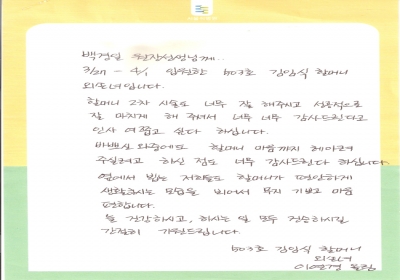 백경일 원장선생님께..
3/27 - 4/1 입원한 503호 김임식 할머니
외손녀입니다.
할머니 2차 시술도 너무 잘 해주시고 성공적으로
잘 마치게 해 주셔서 너무 너무 감사드린다고
인사 여쭙고 싶다 하십니다.
바쁘신 와중에도 할머니 마음까지 헤아려
주실려고 하신 점도 너무 감사드린다 하십니다.
옆에서 뵙는 저희들도 할머니가 편안하게
생활하시는 모습을 뵈어서 무지 기쁘고 마음
편합니다.
늘 건강하시고, 하시는 일 모두 전승하시길
간절히 기원드립니다.
503호 김임식 할머니
외손녀
이연경 올림